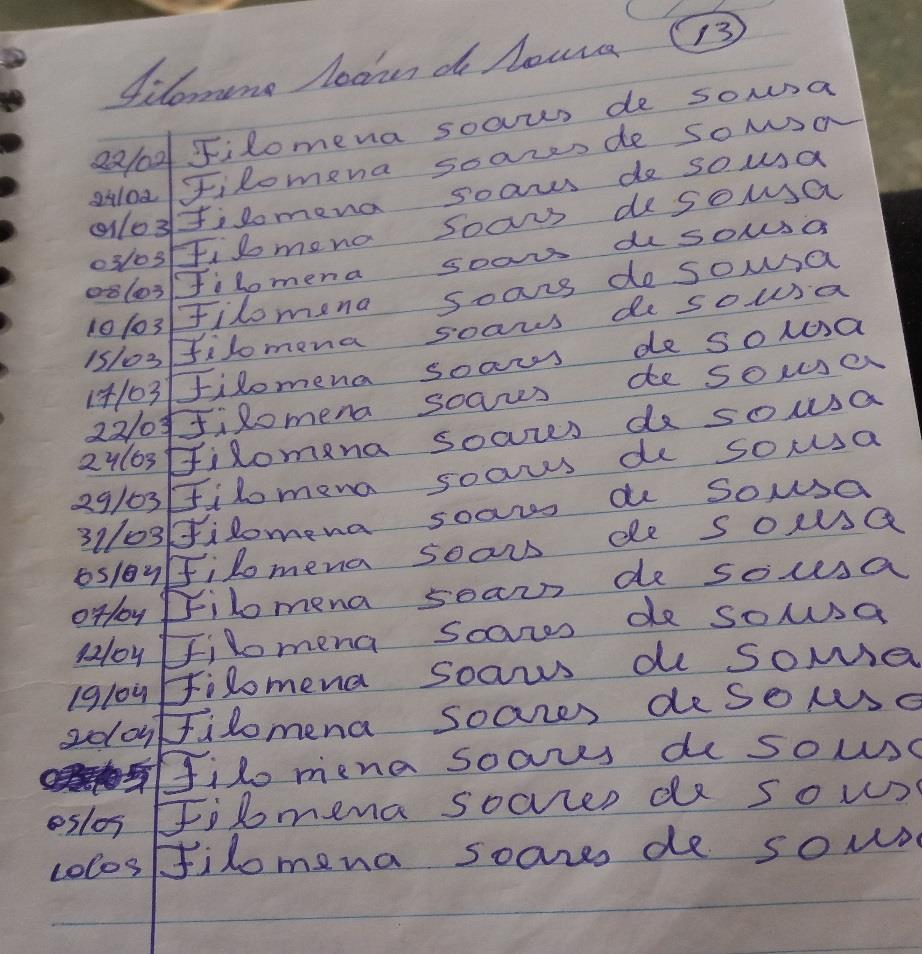 13
Filomena Soares de Sousa
22/02 Filomena soares de sousa
24/02 Filomena soares de sousa
01/03 Filomena soares de sousa
03/03 Filomena soars de sousa
08/03 Filomena soars de sousa
10/03 Filomena soars de sousa
15/03 Filomena soares de sousa
17/03 Filomena soares de sousa
22/03 Filomena soares de sousa
24/03 Filomena soares de sousa
29/03 Filomena soares de sousa
31/03 Filomena soares de sousa
05/04 Filomena soars de sousa
07/04 Filomena soars de sousa
12/04 Filomena soares de sousa
19/04 Filomena soares de sousa
20/04 Filomena soares de sousa
Filomena soares de sousa
05/05 Filomena soares de sous
Filomena soares de sous